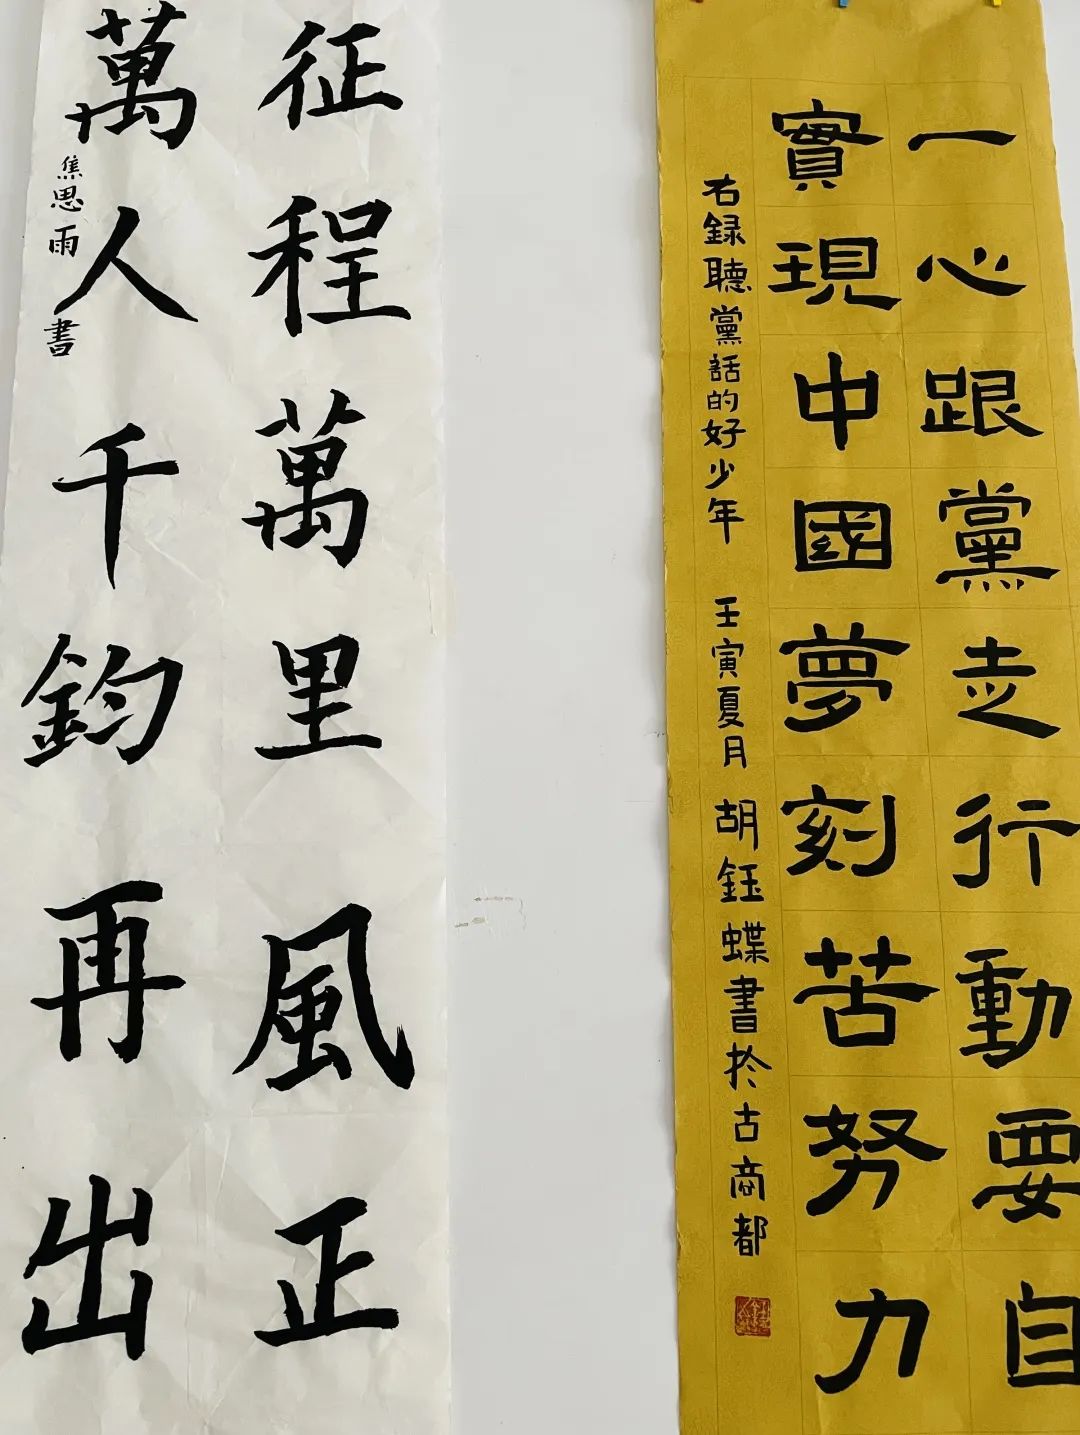 一心跟黨走行動要自
實現中國夢刻苦努力
右録聽黨話的好少年 壬寅夏月 胡鈺蝶書於古商都
征程萬里風正
萬人千鈞再出
焦思雨書